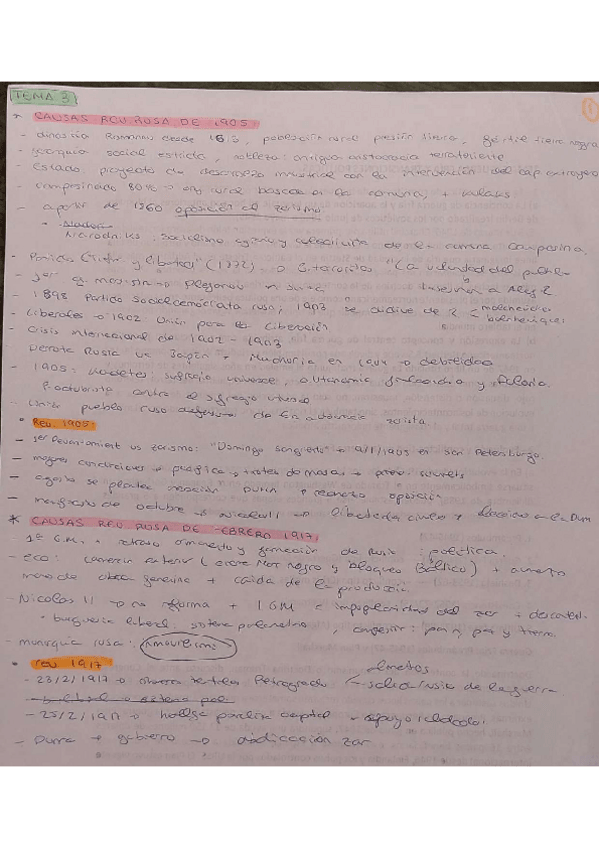 TEMA 3
1
* CAUSAS REV. RUSA DE 1905:
- dinastía Romanov desde 1613, población rural presión, fértil tierra negra
- jerarquía social estricta, nobleza: antigua aristocracia terrateniente
- Estado proyecto de desarrollo industrial con la intervención del cap. extranjero
- campesinado 80% → org rural basada en la comuna, + kulaks
- a partir de 1860 oposición al zarismo
Narodniks, socialismo agrario y colectivista de la comuna campesina.
- Partido "Tierra y libertad" (1872) → "La voluntad del pueblo"
asesinan a Alej. 2
- 1er g. marxismo Plejanov en Suiza
- 1898 Partido Socialdemócrata ruso, 1903 se divide de 2 mencheviques
bolcheviques
- Liberales → 1902 Unión para la Liberación
- Crisis internacional de 1902 - 1903
Derrota Rusia vs Japón → Manchuria en 1904 → debilidad
- 1905: kadetes: sufragio universal, autonomía Finlandia y Polonia.
P. octubrista contra el sufragio universal
- pueblo ruso defensa de la autocracia zarista.
• Rev. 1905:
- 1er levantamiento vs zarismo: "Domingo Sangriento" → 9/1/1905 en San Petersburgo.
- mejores condiciones + → soviets
- agosto se plantea creación Duma → rechazo oposición
- manifiesto de octubre → Nicolás II → libertades civiles + elección a la Duma
* CAUSAS REV. RUSA DE FEBRERO 1917:
1ª G.M. + retraso armamento y formación de Rusia: política.
- eco: comercio exterior (cierre Mar Negro y bloqueo Báltico) + aumento
mano de obra + caída de la producción.
- Nicolás II → no reforma + I GM = impopularidad del zar +
• burguesía liberal: sistema parlamentario, campesinos: pan, paz y tierra.
- monarquía rusa: inmovilismo
• rev. 1917
- 23/2/1917 → obrera textiles Petrogrado alimentos
salida rusia de la guerra
- 25/2/1917 → huelga paraliza capital → apoyo soldados.
- Duma → gobierno → abdicación zar